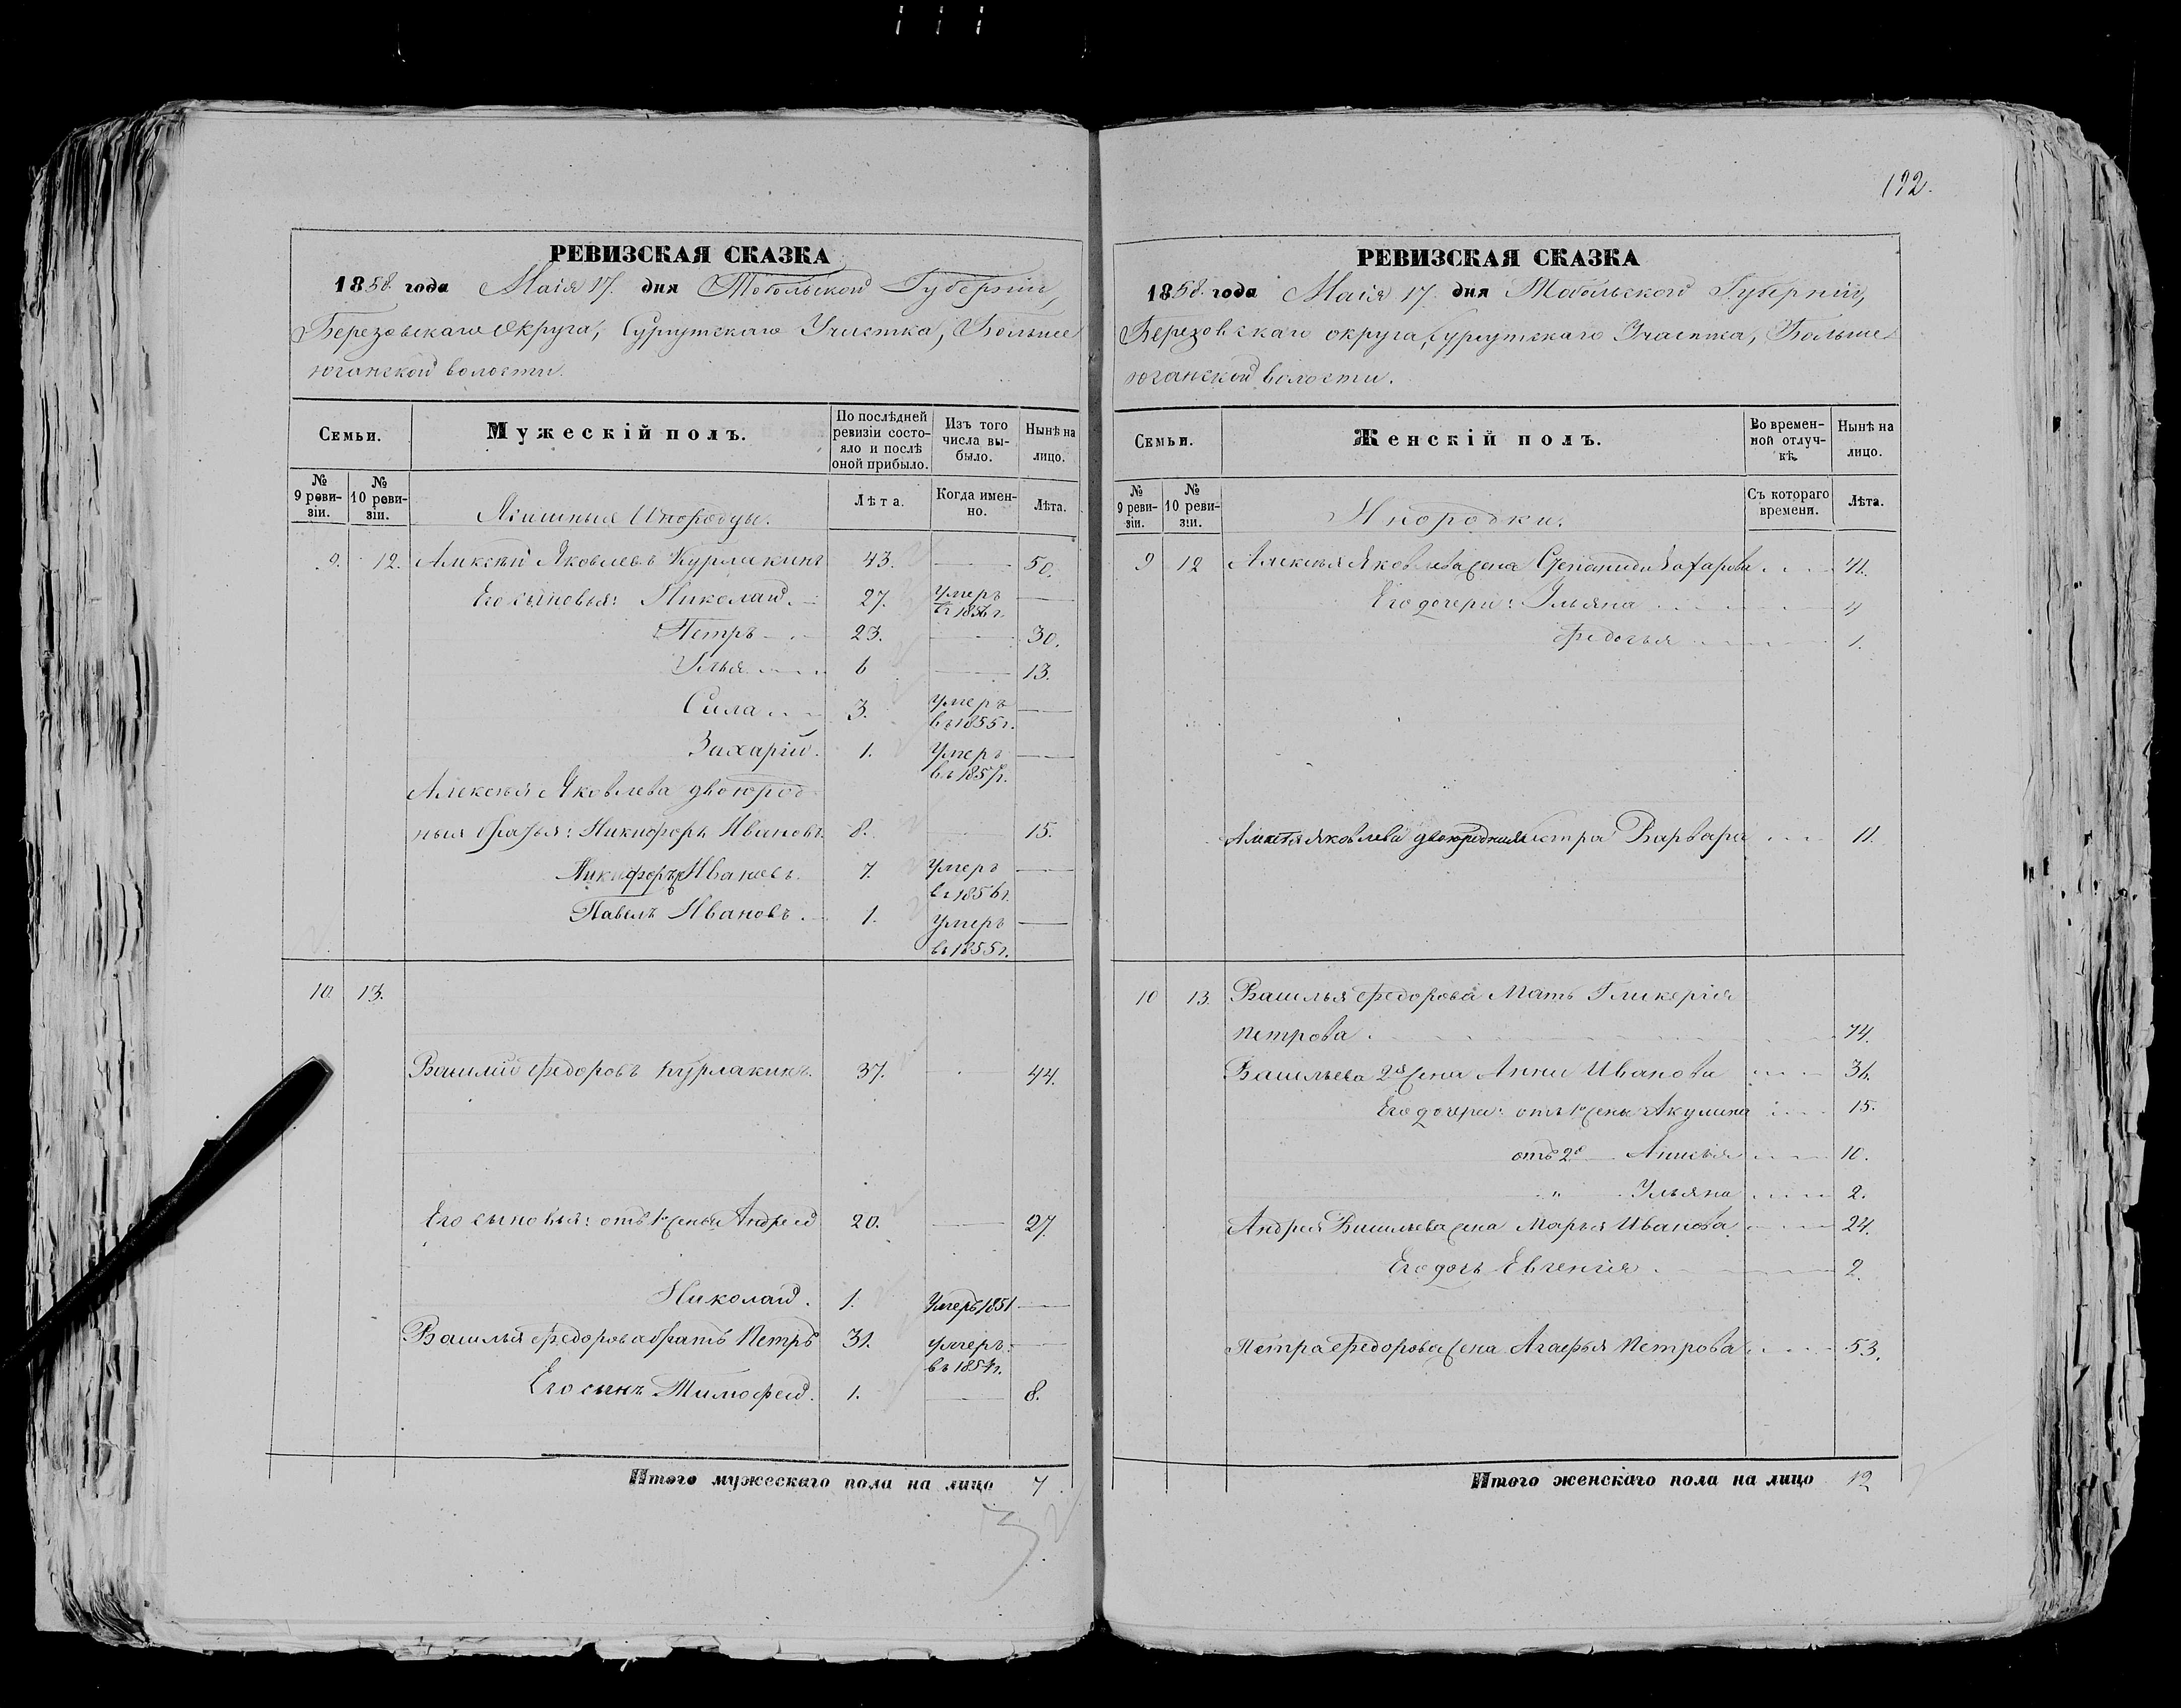 192.
РЕВИЗСКАЯ СКАЗКА
1858. года Маія 17. дня Тобольской Губерніи,
Березовскаго Округа, Сургутскаго Участка, Больше
юганской волости.
Семьи.
Мужескій полъ.
По послѣдней ревизіи состо-
яло и послѣ оной прибыло.
Изъ того числа вы-
было.
Нынѣ на лицо.
№ 9 реви-
зіи.
№ 10 реви-
зіи.
Инородцы.
Лѣта.
Когда имен-
но.
Лѣта.
9. 12. Алексѣй Яковлевъ Курлакинъ 43. 50.
Его сыновья: Николай. 27. Умеръ
въ 1856 г.
Петръ 23. 30.
Илья 6 13.
Сила 3. Умеръ
въ 1855 г.
Захарій. 1. Умеръ
въ 1857 г.
Алексѣя Яковлева двоюрод-
ныя братья: Никифоръ Ивановъ. 8. 15.
Никифоръ Ивановъ. 7. Умеръ
въ 1856 г.
Павелъ Ивановъ. 1. Умеръ
въ 1855 г.
10. 13.
Василій Федоровъ Курлакинъ. 37. 44.
Его сыновья: отъ 1й жены Андрей 20. 27.
Николай. 1. Умеръ 1851
Василья Федорова братъ Петръ 31. Умеръ
въ 1854 г.
Его сынъ Тимофей. 1. 8.
Итого мужескаго пола на лицо 7.
РЕВИЗСКАЯ СКАЗКА
1858. года Маія 17. дня Тобольской Губерніи,
Березовскаго округа, Сургутскаго Участка, Больше
юганской волости.
Семьи.
Женскій полъ.
Во времен-
ной отлуч-
кѣ.
Нынѣ на лицо.
№ 9 реви-
зіи.
№ 10 реви-
зіи.
Инородки.
Съ котораго времени.
Лѣта.
9 12 Алексѣя Яковлева жена Степанида Захарова 41.
Его дочери: Ульяна 4
Федосья 1.
Алексѣя Яковлева двоюродная сестра Варвара 11.
10 13. Василья Федорова Мать Гликерія
Петрова. 74.
Васильева 2я жена Анна Иванова 36.
Его дочери: отъ 1й жены Акулина 15.
отъ 2й Анисья 10.
" Ульяна 2.
Андрея Васильева жена Марья Иванова. 24.
Его дочь Евгенія 2.
Петра Федорова жена Агафья Петрова 53.
Итого женскаго пола на лицо 12